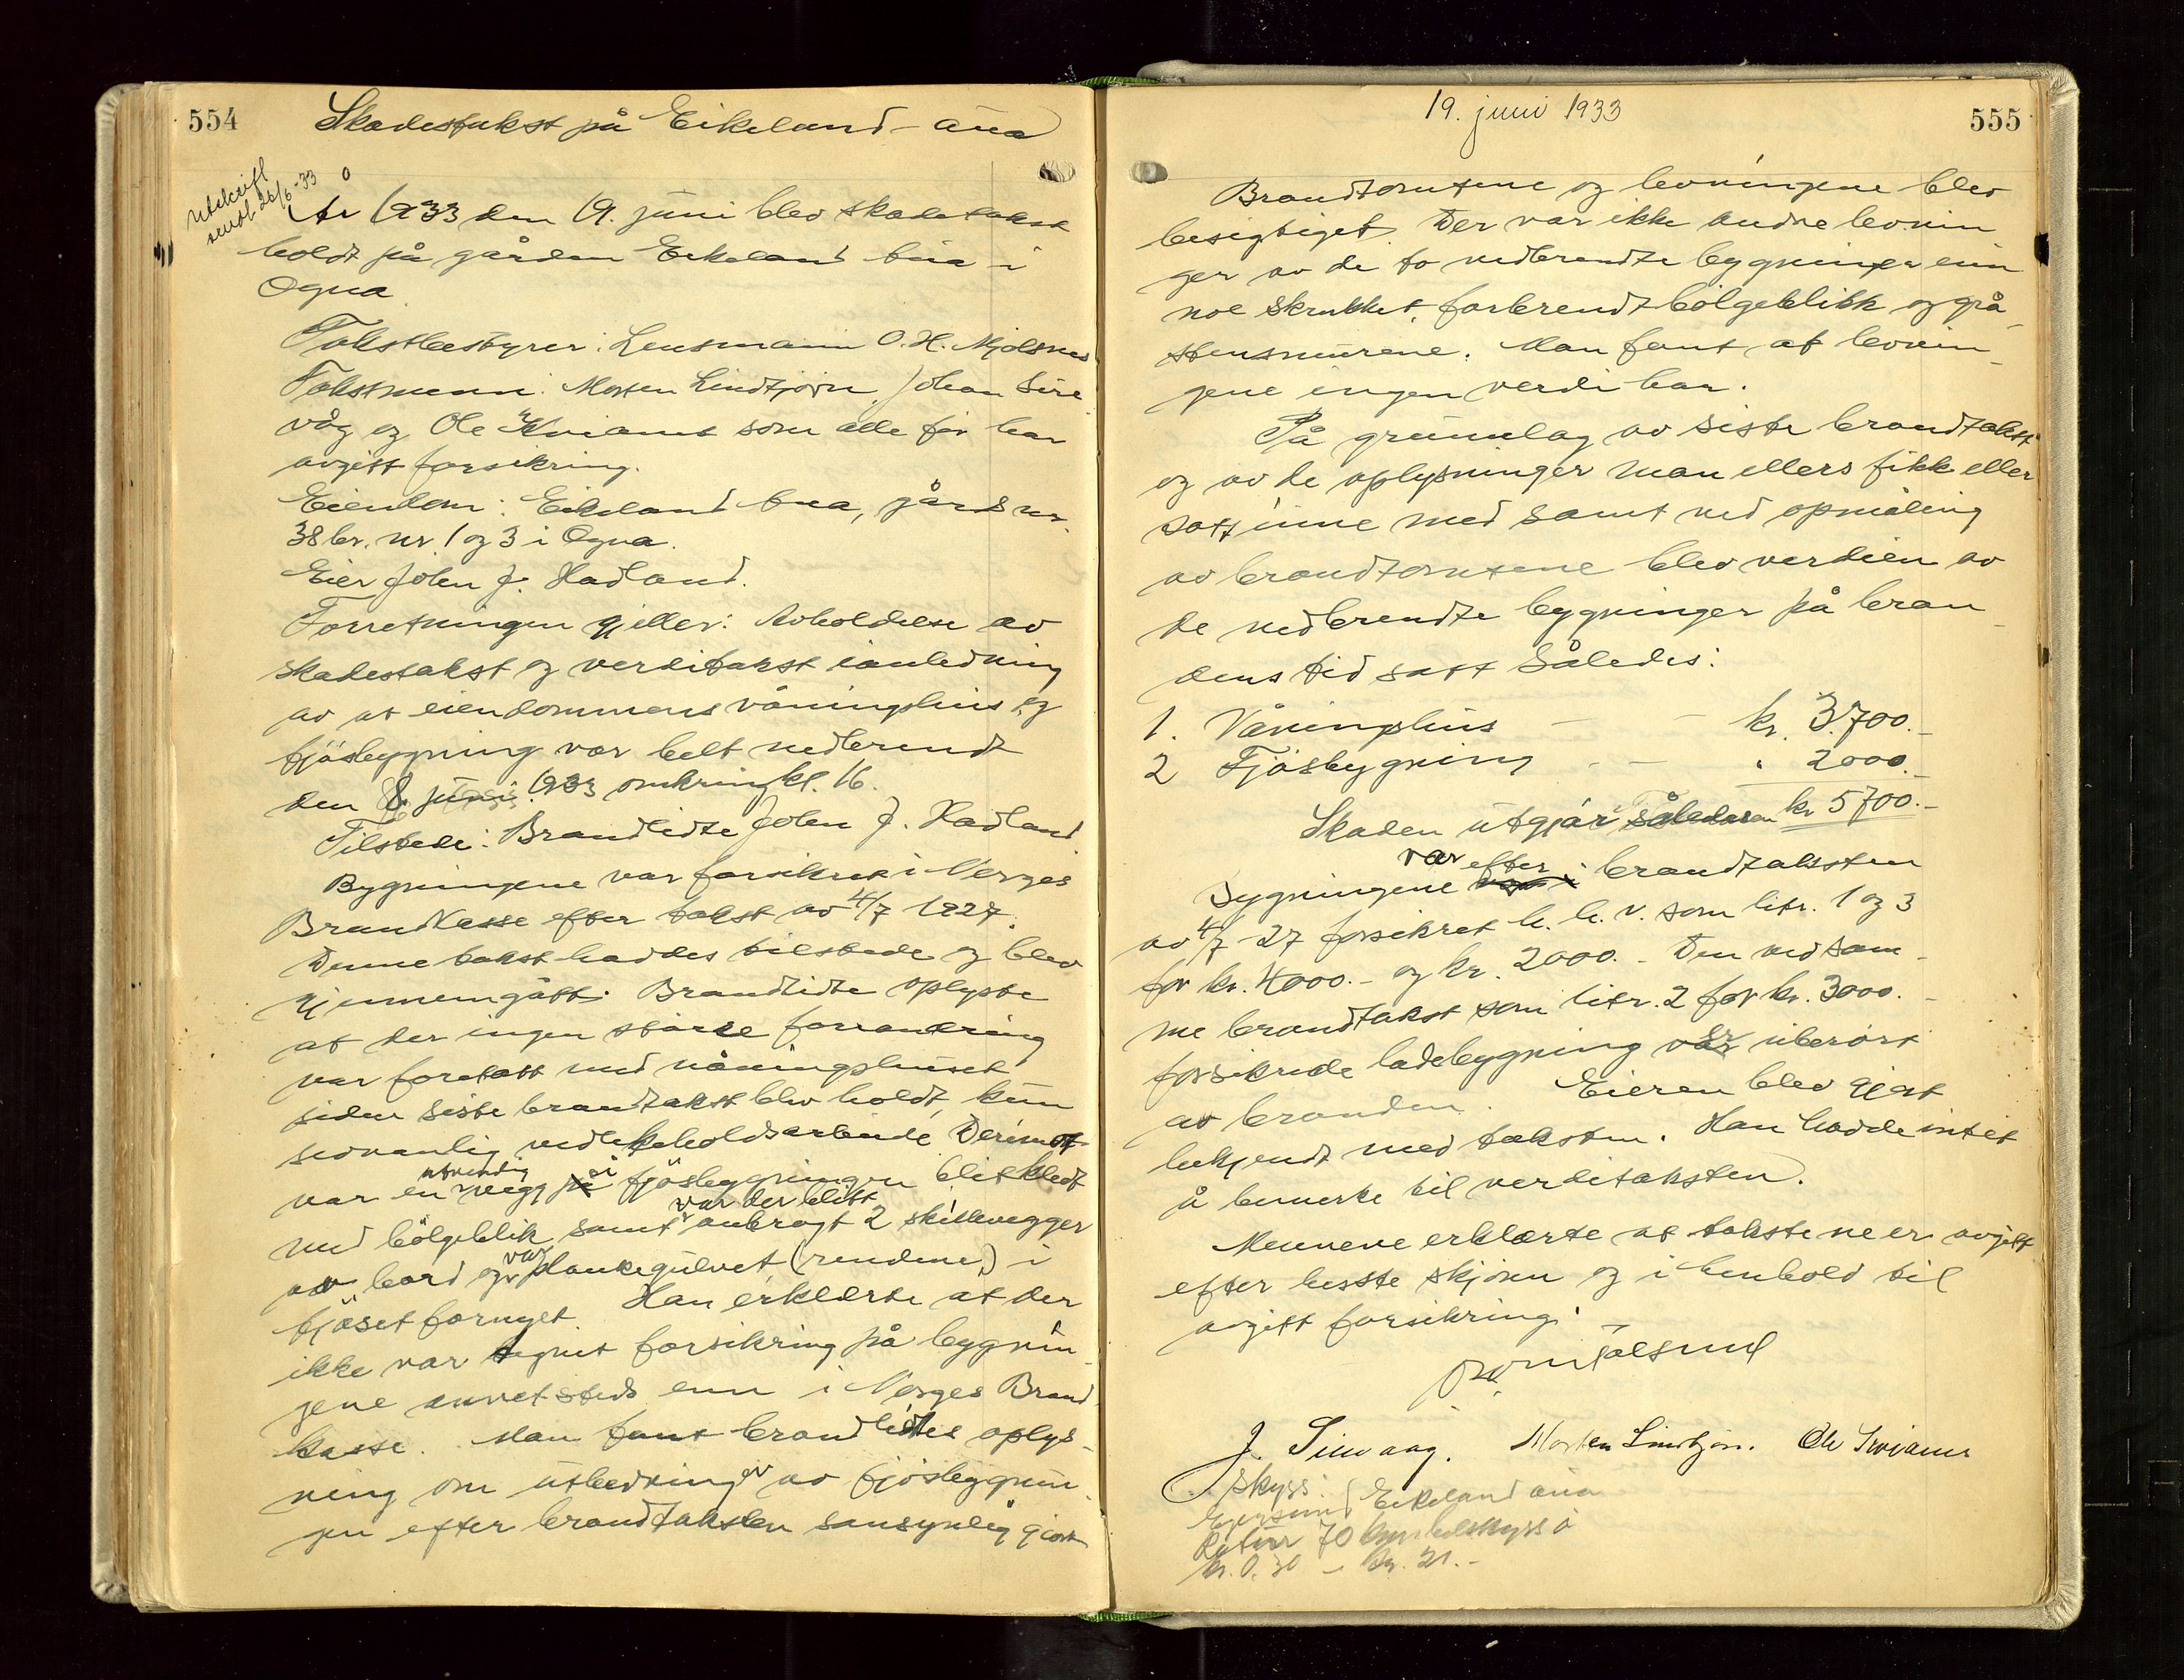 554
Skadestakst på Eikeland - åna
Utskrift
sendt 26/6-33
År 1933 den 19. juni blev skadetakst
holdt på gården Eikeland åna i
Ogna
Takstbestyrer: Lensmann O. H. Mjølsnes
Takstmenn: Morten Lindtjørn, Johan Sire-
våg og Ole Kviamt som alle før har
avgitt forsikring.
Eiendom: Eikeland åna, gårds nr.
38 br. nr. 1 og 3 i Ogna.
Eier John J. Hadland.
Forretningen gjeller: Avholdelse av
skadestakst og verditakst ianledning
av at eiendommens våningshus og
fjøsbygning var helt nedbrendt
den 8. juni 1933 omkring kl. 16.
Tilstede: Brandlidte John J. Hadland
Bygningene var forsikret i Norges
Brandkasse efter takst av 4/7 1927.
Denne takst haddes tilstede og blev
gjennemgått. Brandlidte oplyste
at der ingen større forrandring
var foretatt med våningshuset
siden siste brandtakst blev holdt, kun
sedvanlig vedlikeholdsarbeide. Derimot
var en utvendig vegg i fjøsbygningen blit kledt
med bölgeblik samt var der blitt anbragt 2 skillevegger
av bord og var plankegulvet (rendene) i
fjöset fornyet. Han erklærte at der
ikke var tegnet forsikring på bygnin-
gene annet steds enn i Norges Brand-
kasse. Man fant brandlidtes oplys-
ning om utbedringer av fjösbygnin-
gen efter brandtaksten sansynlig gjort
19. juni 1933
555
Brandtomtene og levningene blev
besigtiget. Der var ikke andre levnin
ger av de to nedbrendte bygninger enn
noe skrukket, forbrendt bölgeblikk og grå-
stensmurene. Man fant at levnin-
gene ingen verdi har.
På grunnlag av siste brandtakst
og av de oplysninger man ellers fikk eller
satt inne med samt ved opmåling
av brandtomtene blev verdien av
de nedbrendte bygninger på bran-
dens tid satt således:
1. Våningshus - - kr. 3.700.-
2 Fjösbygning - - " 2000.-
Skaden utgjør således kr 5700.-
Bygningene var efter brandtaksten
av 4/7-27 forsikret h. h. v. som litr. 1 og 3
for kr. 4000.- og kr. 2000.- Den ved sam-
me brandtakst som litr. 2 for kr. 3000.-
forsikrede ladebygning er uberørt
av branden. Eieren blev gjort
bekjendt med taksten. Han hadde intet
å bemerke til verditaksten.
Mennene erklærte at takstene er avgitt
efter beste skjønn og i henhold til
avgitt forsikring.
O H Mjølsnes
J. Sirevaag. Morten Lindtjørn. Ole Kviamt
Skyss:
Egersund Eikeland åna
Retur 70 km bilskyss à
kr. 0,30 - kr. 21.-